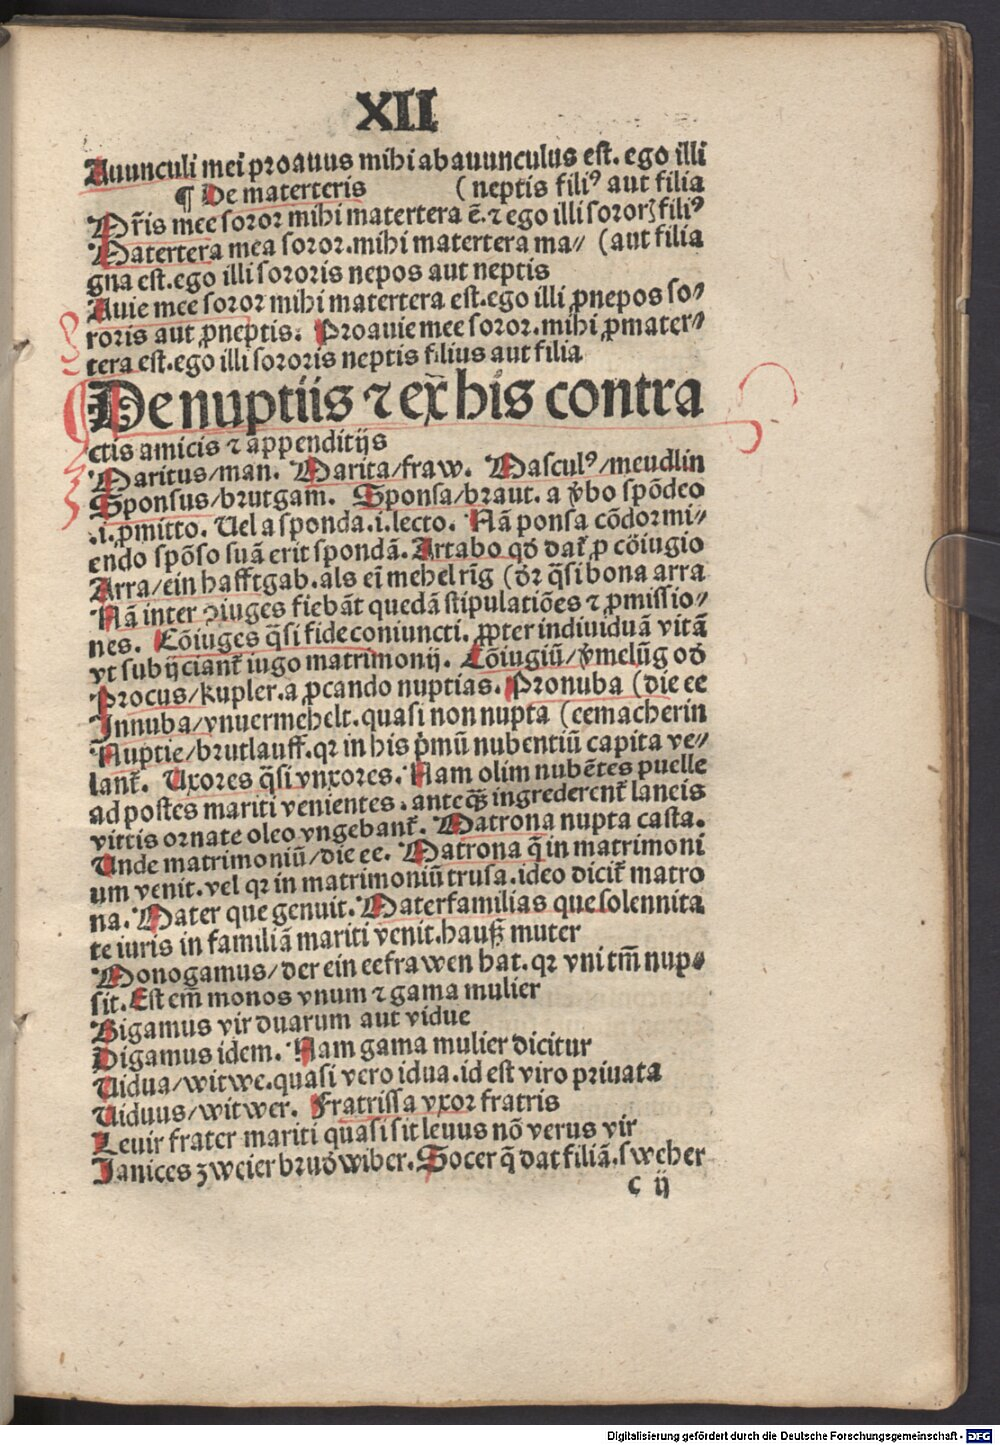 XII
Auunculi mei proauus mihi abauunculus est. ego illi
¶ De materteris (neptis filiꝰ aut filia
Mr̃is mee soror mihi matertera ē. ⁊ ego illi sororꝫ filiꝰ
Matertera mea soror. mihi matertera ma⸗ (aut filia
gna est. ego illi sororis nepos aut neptis
Auie mee soror mihi matertera est. ego illi ꝓnepos so⸗
roris aut ꝓneptis. Proauie mee soror. mihi ꝓmater⸗
tera est. ego illi sororis neptis filius aut filia
De nuptiis ⁊ ex̃ his contra
ctis amicis ⁊ appenditijs
Maritus/man. Marita/fraw. Masculꝰ/meudlin
Sponsus/brutgam. Sponsa/braut. a v̓bo spōdeo
.i. ꝓmitto. Uel a sponda .i. lecto. Nā ponsa cōdormi⸗
endo spōso suā erit spondā. Artabo qd̓ dat̃ ꝓ cōiugio
Arra/ein hafftgab. als eī mehel rīg (d̓r q̄si bona arra
Nā inter ꝯiuges fiebāt quedā stipulatiōes ⁊ ꝓmissio⸗
nes. Cōiuges q̄si fide coniuncti. ꝓpter indiuiduā vitā
vt subijciant̃ iugo matrimonij. Cōiugiū/v̓melūg od̓
Procus/kupler. a ꝓcando nuptias. Pronuba (die ee
Innuba/vnuermehelt. quasi non nupta (eemacherin
Nuptie/brutlauff. qꝛ in his p̓mū nubentiū capita ve⸗
lant̃. Uxores q̄si vnxores. Nam olim nubētes puelle
ad postes mariti venientes. anteq̄ꝫ ingrederent̃ laneis
vittis ornate oleo vngebant̃. Matrona nupta casta.
Unde matrimoniū/die ee. Matrona q̄ in matrimoni
um venit. vel qꝛ in matrimoniū trusa. ideo dicit̃ matro
na. Mater que genuit. Materfamilias que solennita
te iuris in familiā mariti venit. hauß muter
Monogamus/der ein eefrawen hat. qꝛ vni tm̄ nup⸗
sit. Est em̄ monos vnum ⁊ gama mulier
Bigamus vir duarum aut vidue
Digamus idem. Nam gama mulier dicitur
Uidua/witwe. quasi vero idua. id est viro priuata
Uiduus/witwer. Fratrissa vxor fratris
Leuir frater mariti quasi sit leuus nō verus vir
Janices zweier brud̓ wiber. Socer q̄ dat filiā. sweher
c ij
Digitalisierung gefördert durch die Deutsche Forschungsgemeinschaft - DFG